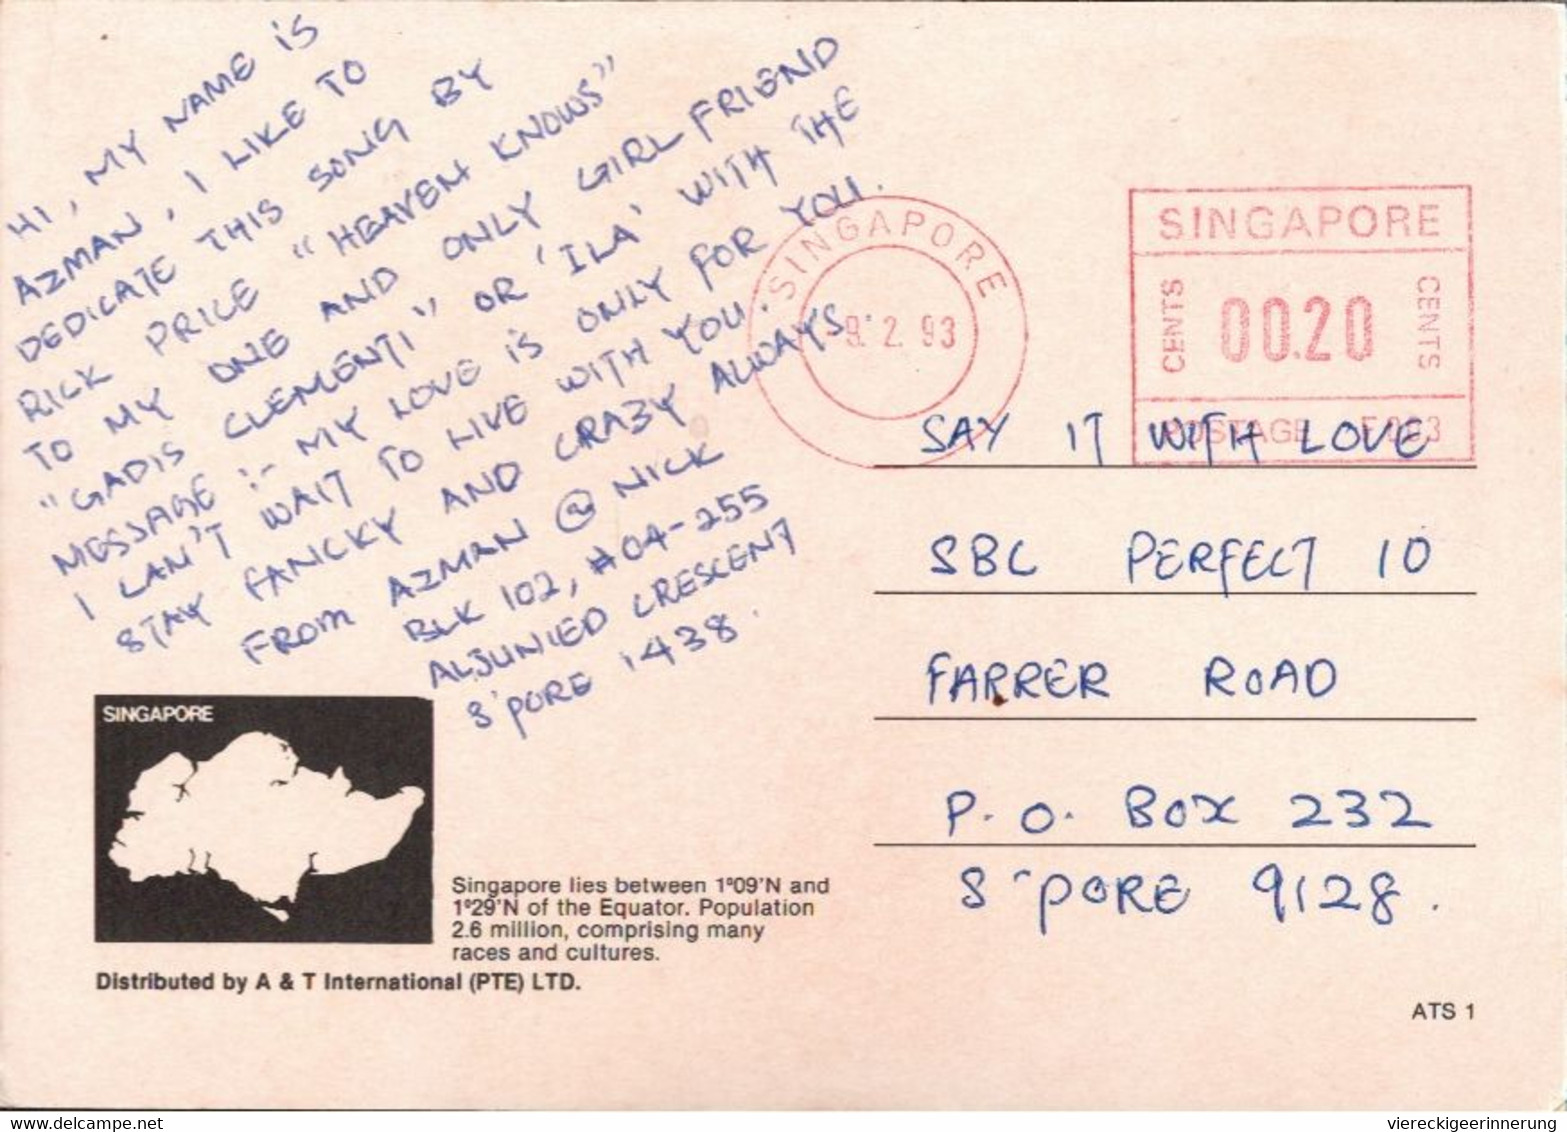 HI, MY NAME IS
AZMAN, I LIKE TO
DEDICATE THIS SONG BY
RICK PRICE "HEAVEN KNOWS"
TO MY ONE AND ONLY GIRL FRIEND
"GADIS CLEMENTI" OR 'ILA' WITH THE
MESSAGE :- MY LOVE IS ONLY FOR YOU.
I CAN'T WAIT TO LIVE WITH YOU.
STAY FANCKY AND CRAZY ALWAYS
FROM AZMAN @ NICK
BLK 102, #04-255
ALJUNIED CRESCENT
S'PORE 1438.
SINGAPORE
9.2.93
SINGAPORE
CENTS 00.20 CENTS
POSTAGE
SAY IT WITH LOVE
SBC PERFECT 10
FARRER ROAD
P.O. BOX 232
S'PORE 9128.
SINGAPORE
Singapore lies between 1º09'N and
1º29'N of the Equator. Population
2.6 million, comprising many
races and cultures.
Distributed by A & T International (PTE) LTD.
ATS 1
viereckigeerinnerung